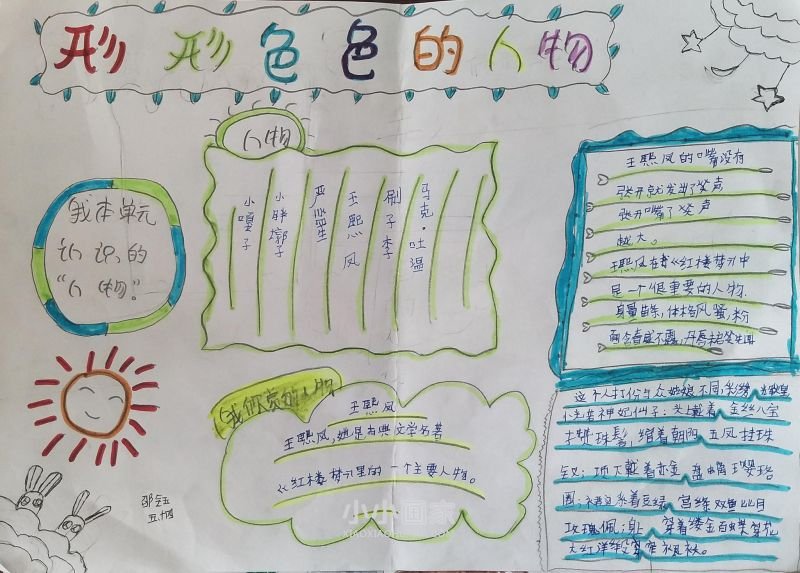 形形色色的人物
人物
我本单元
认识的
“人物”
小嘎子
小胖墩子
严监生
王熙凤
刷子李
马克·吐温
我们欣赏的人物
王熙凤
王熙凤,她是古典文学名著
《红楼梦》里的一个主要人物。
王熙凤的嘴没有
张开就发出了笑声
张开嘴了笑声
越大。
王熙凤在《红楼梦》中
是一个很重要的人物.
身量苗条,体格风骚,粉
面含春威不露,丹唇
这个人打扮与众姑娘不同
神妃仙子:头上戴着金丝八宝
攒珠髻,绾着朝阳五凤挂珠
钗;项下戴着赤金盘螭璎珞
圈;裙边系着豆绿宫绦双鱼比目
玫瑰佩;身上穿着缕金百蝶穿花
大红洋缎窄裉袄。
邹钰
五.四
小小画家
XIAOXIAOHUAJIA